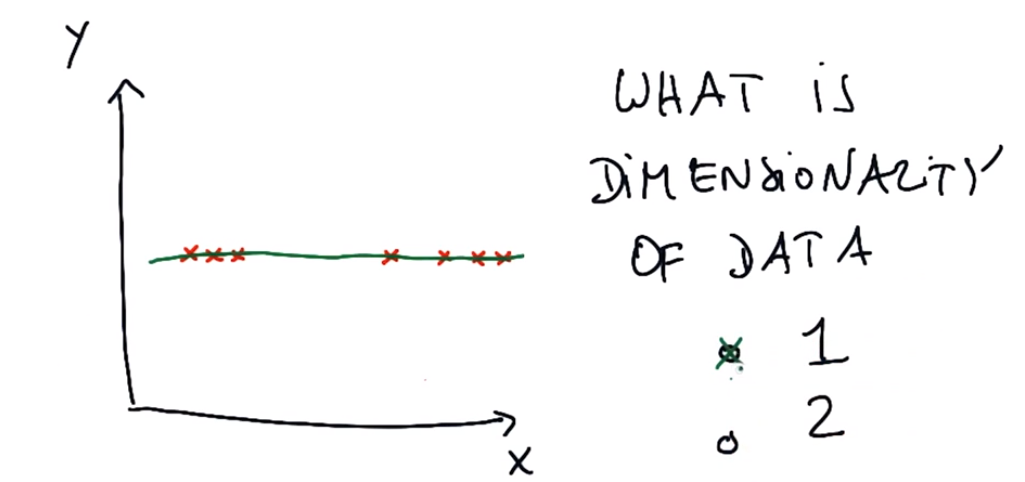 Y
WHAT IS
DIMENSIONALITY
OF DATA
1
2
X